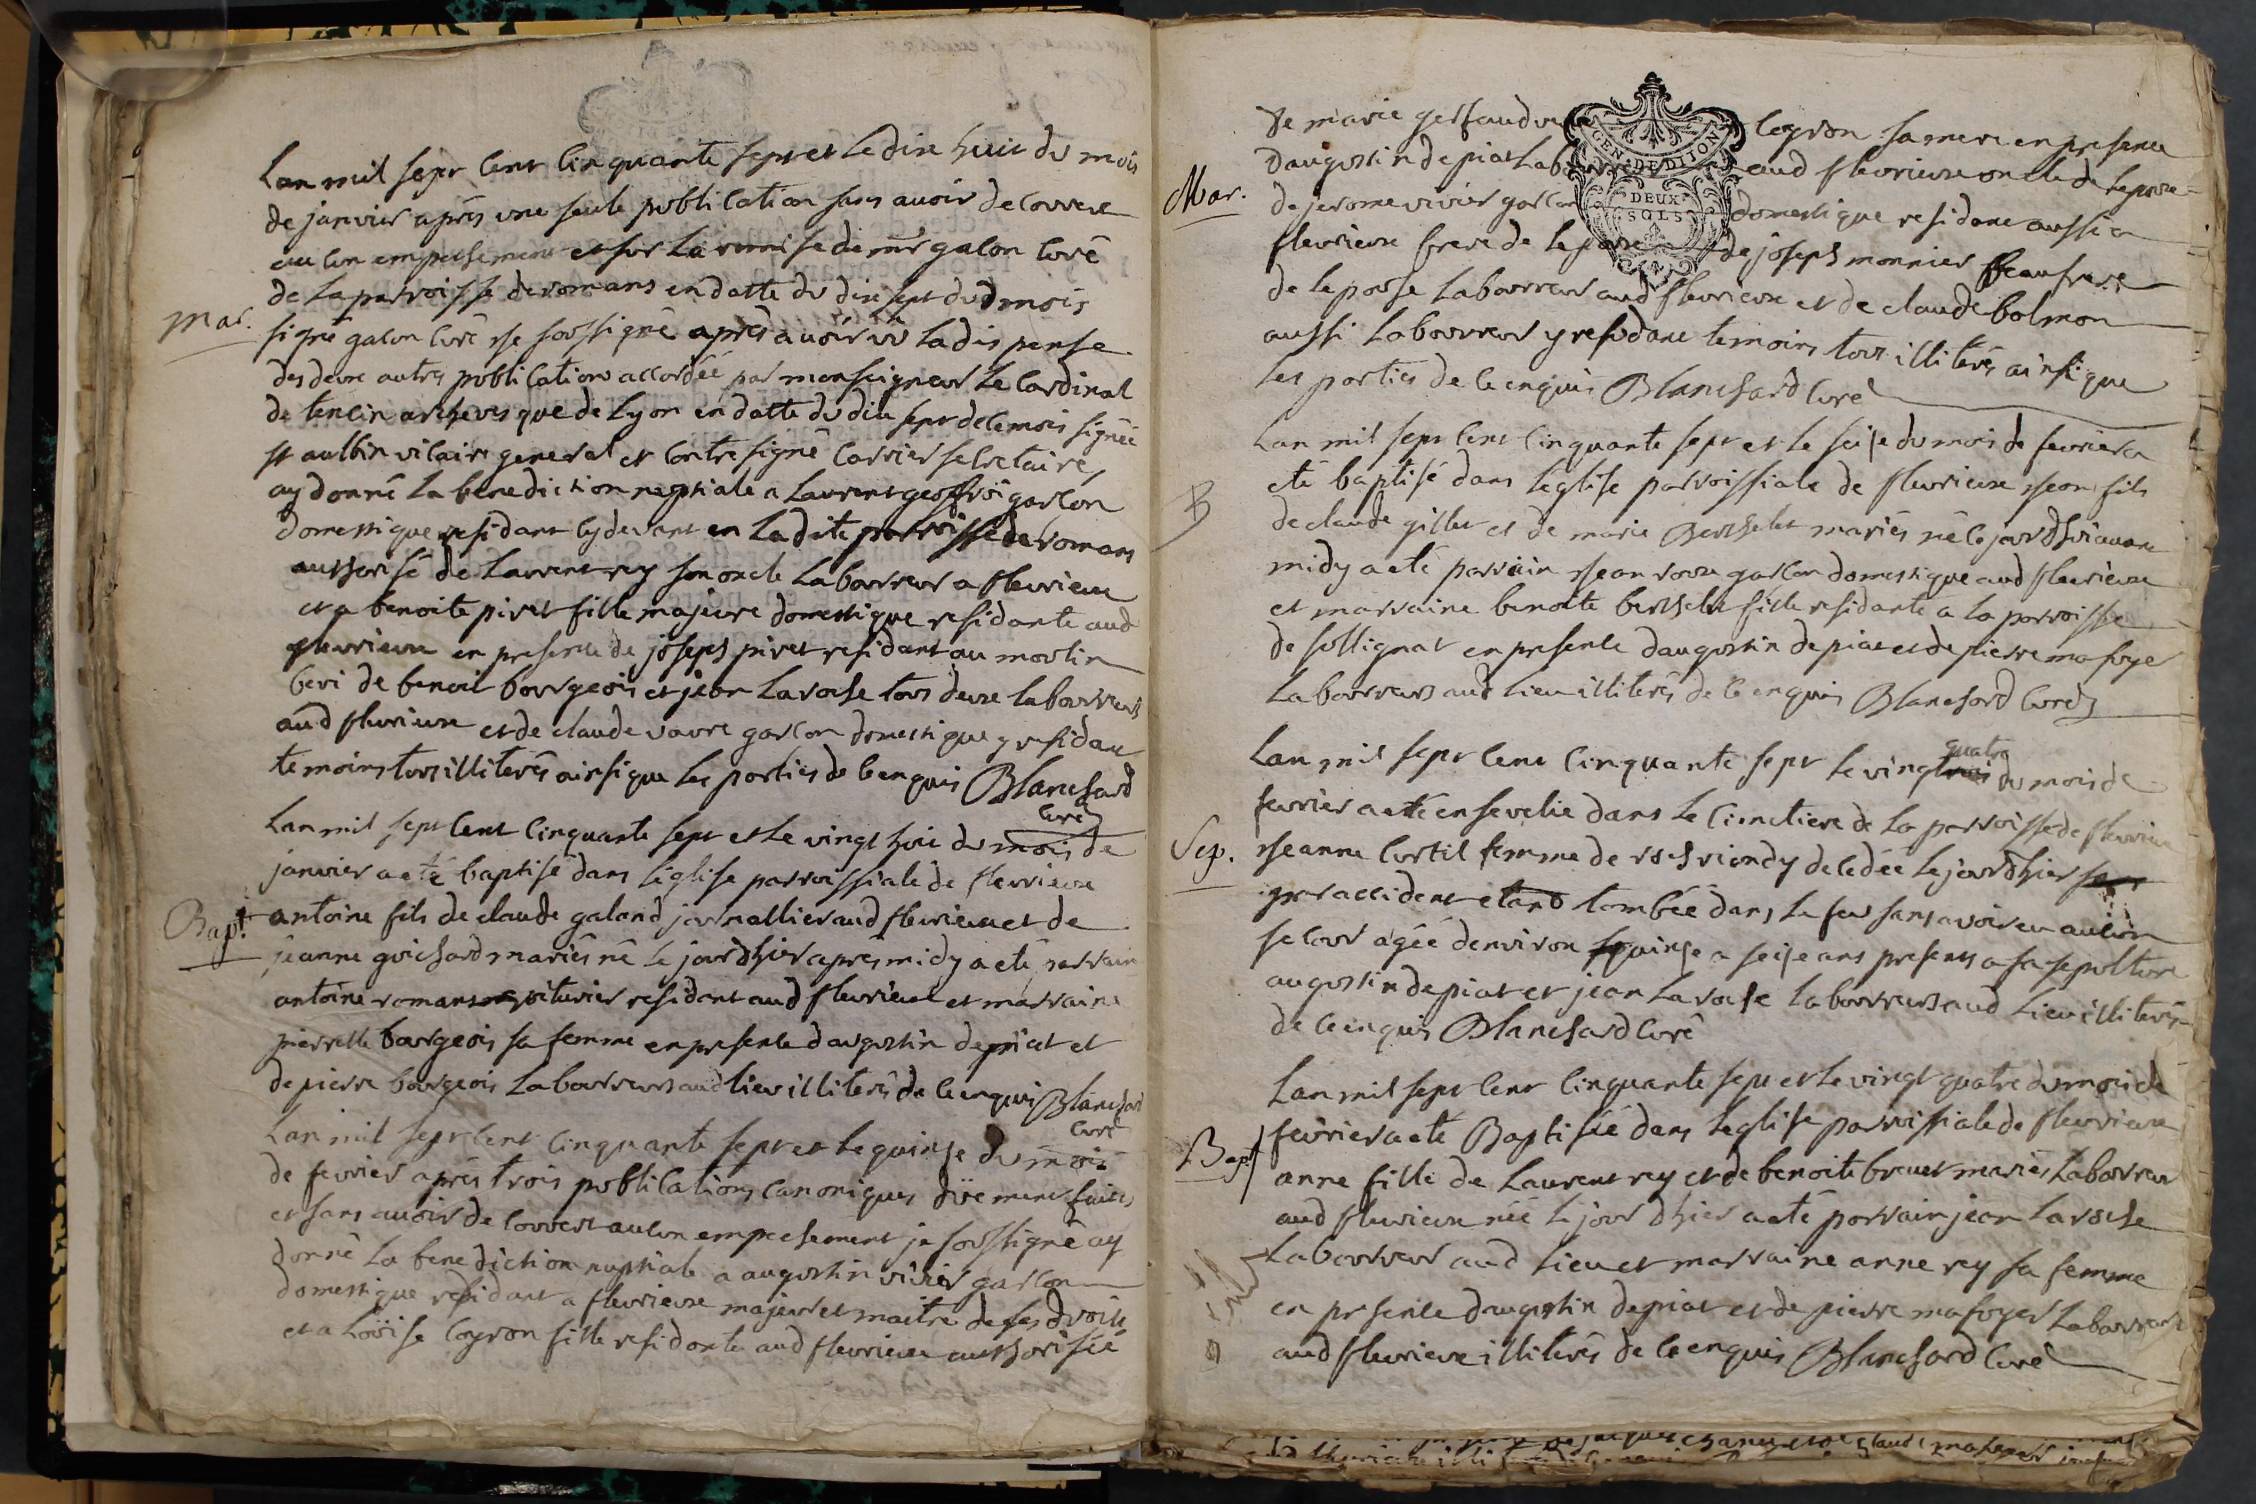 Lan mil sept cent cinquante sept et le dix huit du mois
de janvier aprés une seule publication sans avoir decouvert
aucun empechement et sur la remise de mr galon curé
de la parroisse de romans en datte du dix sept dud mois
Mar.
signé galon curé je soussigné aprés avoir vû la dispense
des deux autres publications accordée par monseigneur le cardinal
de tencin archevesque de Lyon en datte du dix sept de ce mois signée
st aulbin vicaire general et contre signé carrier secretaire,
ay donné la benediction nuptiale a Laurent geoffroi garcon
domestique residant cy devant en la dite parroisse de romans
authorisé de Laurent rey son oncle laboureur a fleurieux
et a benoite pivet fille majeure domestique residante aud
fleurieux en presence de joseph pivet residant au moulin
de benoit bourgeois et jean laroche tous deux laboureurs
aud fleurieux et de claude garcon domestique y residant
temoins tous illiterés ainsi que les parties de ce enquis Blanchard
curé
Lan mil sept cent cinquante sept et le vingt huit du mois de
janvier a eté baptisé dans l'eglise parroissiale de fleurieux
Bapt.
antoine fils de claude galand journallier aud fleurieux et de
jeanne guichard mariés né le jour d'hier aprés midy a eté parrain
antoine romans voiturier residant aud fleurieux et marraine
pierrette bourgeois sa femme en presence daugustin depiat et
de pierre bourgeois laboureurs aud lieu illiterés de ce enquis Blanchard
curé
Lan mil sept cent cinquante sept et le quinze du mois
de fevrier aprés trois publications canoniques düement faites
et sans avoir decouvert aucun empechement je soussigné ay
donné la benediction nuptiale a augustin vivier garcon
domestique residant a fleurieux majeur et maitre de ses droits
et a Loüise Coyron fille residante aud fleurieux authorisée
de marie gerfaud Coyron sa mere en presence
daugustin depiat aud fleurieux oncle de
Mar.
de jerome vivier garcon domestique residant aussi a
fleurieux frere de de joseph monnier beaufrere
de lepouse laboureur aud fleurieux et de claude bolmon
aussi laboureur y residant temoins tous illiterés ainsi que
les parties de ce enquis Blanchard curé
Lan mil sept cent cinquante sept et le seise du mois de fevrier a
eté baptisé dans l'eglise parroissiale de fleurieux jean fils
B
de claude gillet et de marie Berthelet mariés né ce jourdhui avant
midy a eté parrain jean garcon domestique aud fleurieux
et marraine benoite berthelet fille residante a la parroisse
de sullignat en presence daugustin depiat et de pierre mafoyer
laboureurs aud lieu illiterés de ce enquis Blanchard curé
quatre
Lan mil sept cent cinquante sept le vingt du mois de
fevrier a eté ensevelie dans le cimetiere de la parroisse de fleurieux
Sep.
jeanne Curtil femme de roch viondy decedée le jour d'hier
par accident etant tombée dans le feu sans avoir eu aucun
secour agée denviron quinse a seise ans presents a sa sepulture
augustin depiat et jean laroche laboureurs aud lieu illiterés
de ce enquis Blanchard curé
Lan mil sept cent cinquante sept et le vingt quatre du mois de
fevrier a eté Baptisée dans leglise parroissiale de fleurieux
Bapt
anne fille de Laurent rey et de benoite brevet mariés laboureur
aud fleurieux née le jour dhier a eté parrain jean laroche
laboureur aud lieu et marraine anne rey sa femme
en presence daugustin depiat et de pierre mafoyer laboureurs
aud fleurieux illiterés de ce enquis Blanchard curé
GEN. DE DIJON
DEUX
SOLS